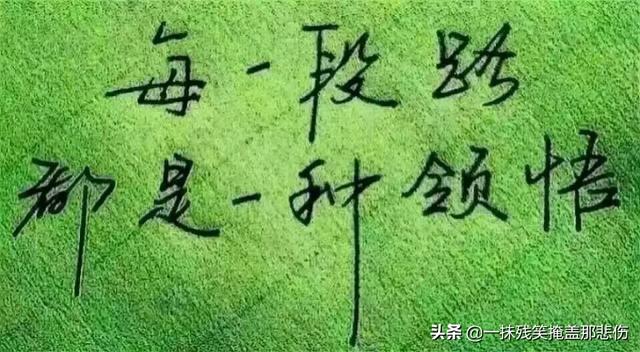 每一段路
都是一种领悟
头条 @一抹残笑掩盖那悲伤